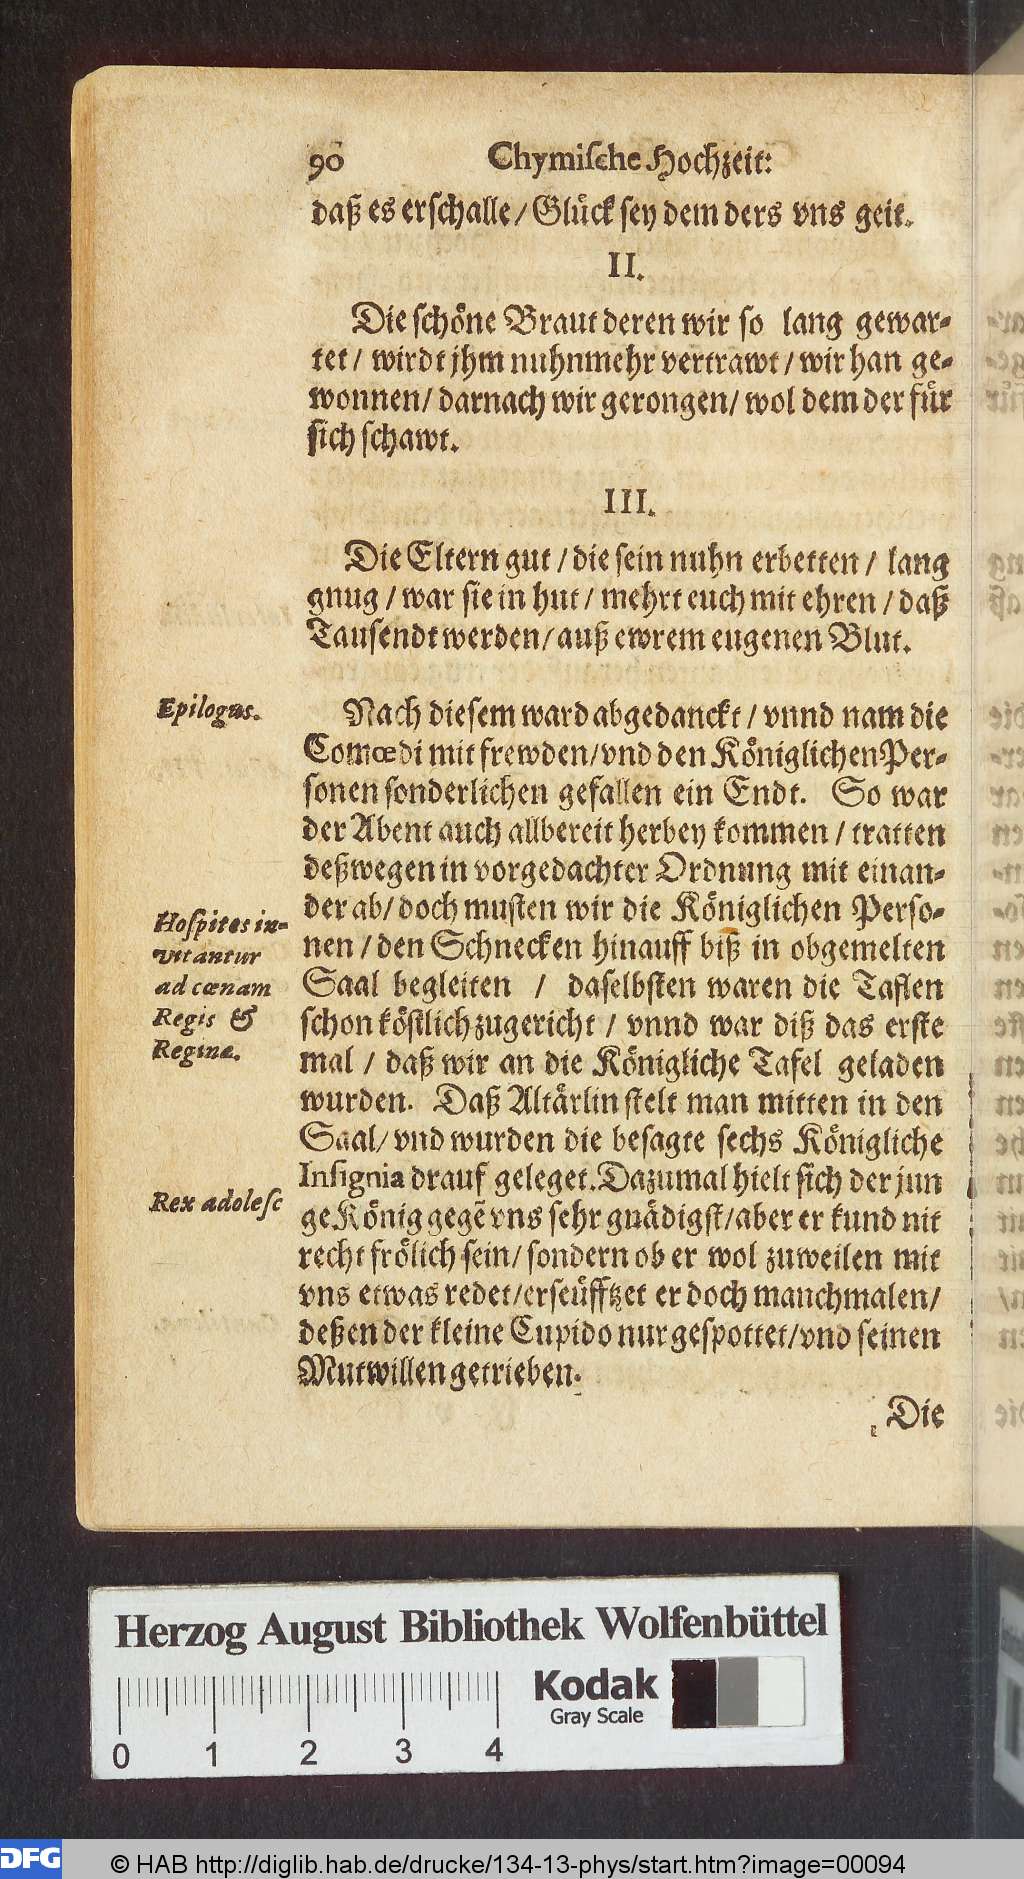 90 Chymische Hochzeit:
daß es erschalle / Glück sey dem ders vns geit.
II.
Die schöne Braut deren wir so lang gewar-
tet / wirdt jhm nuhnmehr vertrawt / wir han ge-
wonnen / darnach wir gerongen / wol dem der für
sich schawt.
III.
Die Eltern gut / die sein nuhn erbetten / lang
gnug / war sie in hut / mehrt euch mit ehren / daß
Tausendt werden / auß ewrem eugenen Blut.
Epilogus.
Nach diesem ward abgedanckt / vnnd nam die
Comœdi mit frewden / vnd den Königlichen Per-
sonen sonderlichen gefallen ein Endt. So war
der Abent auch allbereit herbey kommen / tratten
deßwegen in vorgedachter Ordnung mit einan-
der ab / doch musten wir die Königlichen Perso-
nen / den Schnecken hinauff biß in obgemelten
Saal begleiten / daselbsten waren die Taflen
schon köstlich zugericht / vnnd war diß das erste
mal / daß wir an die Königliche Tafel geladen
wurden. Daß Altärlin stelt man mitten in den
Saal / vnd wurden die besagte sechs Königliche
Insignia drauf geleget. Dazumal hielt sich der jun
ge König gegẽ vns sehr gnädigst / aber er kund nit
recht frölich sein / sondern ob er wol zuweilen mit
vns etwas redet / erseüfftzet er doch manchmalen /
deßen der kleine Cupido nur gespottet / vnd seinen
Mutwillen getrieben.
Hospites in-
vitantur
ad cœnam
Regis &
Reginæ.
Rex adolesc
Die
Herzog August Bibliothek Wolfenbüttel
0 1 2 3 4
Kodak
Gray Scale
DFG
© HAB http://diglib.hab.de/drucke/134-13-phys/start.htm?image=00094